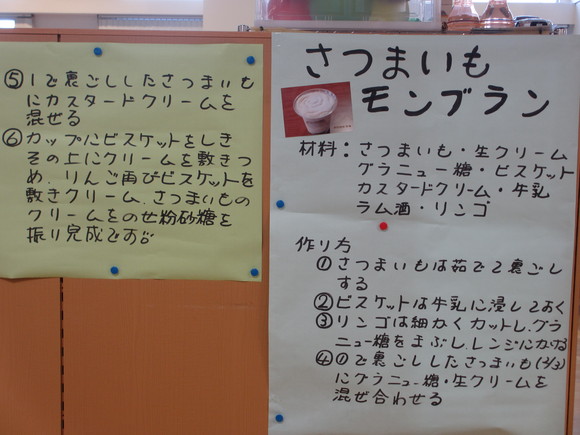 さつまいも
モンブラン
材料：さつまいも・生クリーム
グラニュー糖・ビスケット
カスタードクリーム・牛乳
ラム酒・リンゴ
作り方
①さつまいもは茹でて裏ごし
する
②ビスケットは牛乳に浸しておく
③リンゴは細かくカットし、グラ
ニュー糖をまぶし、レンジにかける
④①で裏ごししたさつまいも(2/3)
にグラニュー糖・生クリームを
混ぜ合わせる
⑤1で裏ごししたさつまいも
にカスタードクリームを
混ぜる
⑥カップにビスケットをしき
その上にクリームを敷きつ
め、りんご再びビスケットを
敷きクリーム、さつまいもの
クリームをのせ粉砂糖を
振り完成です